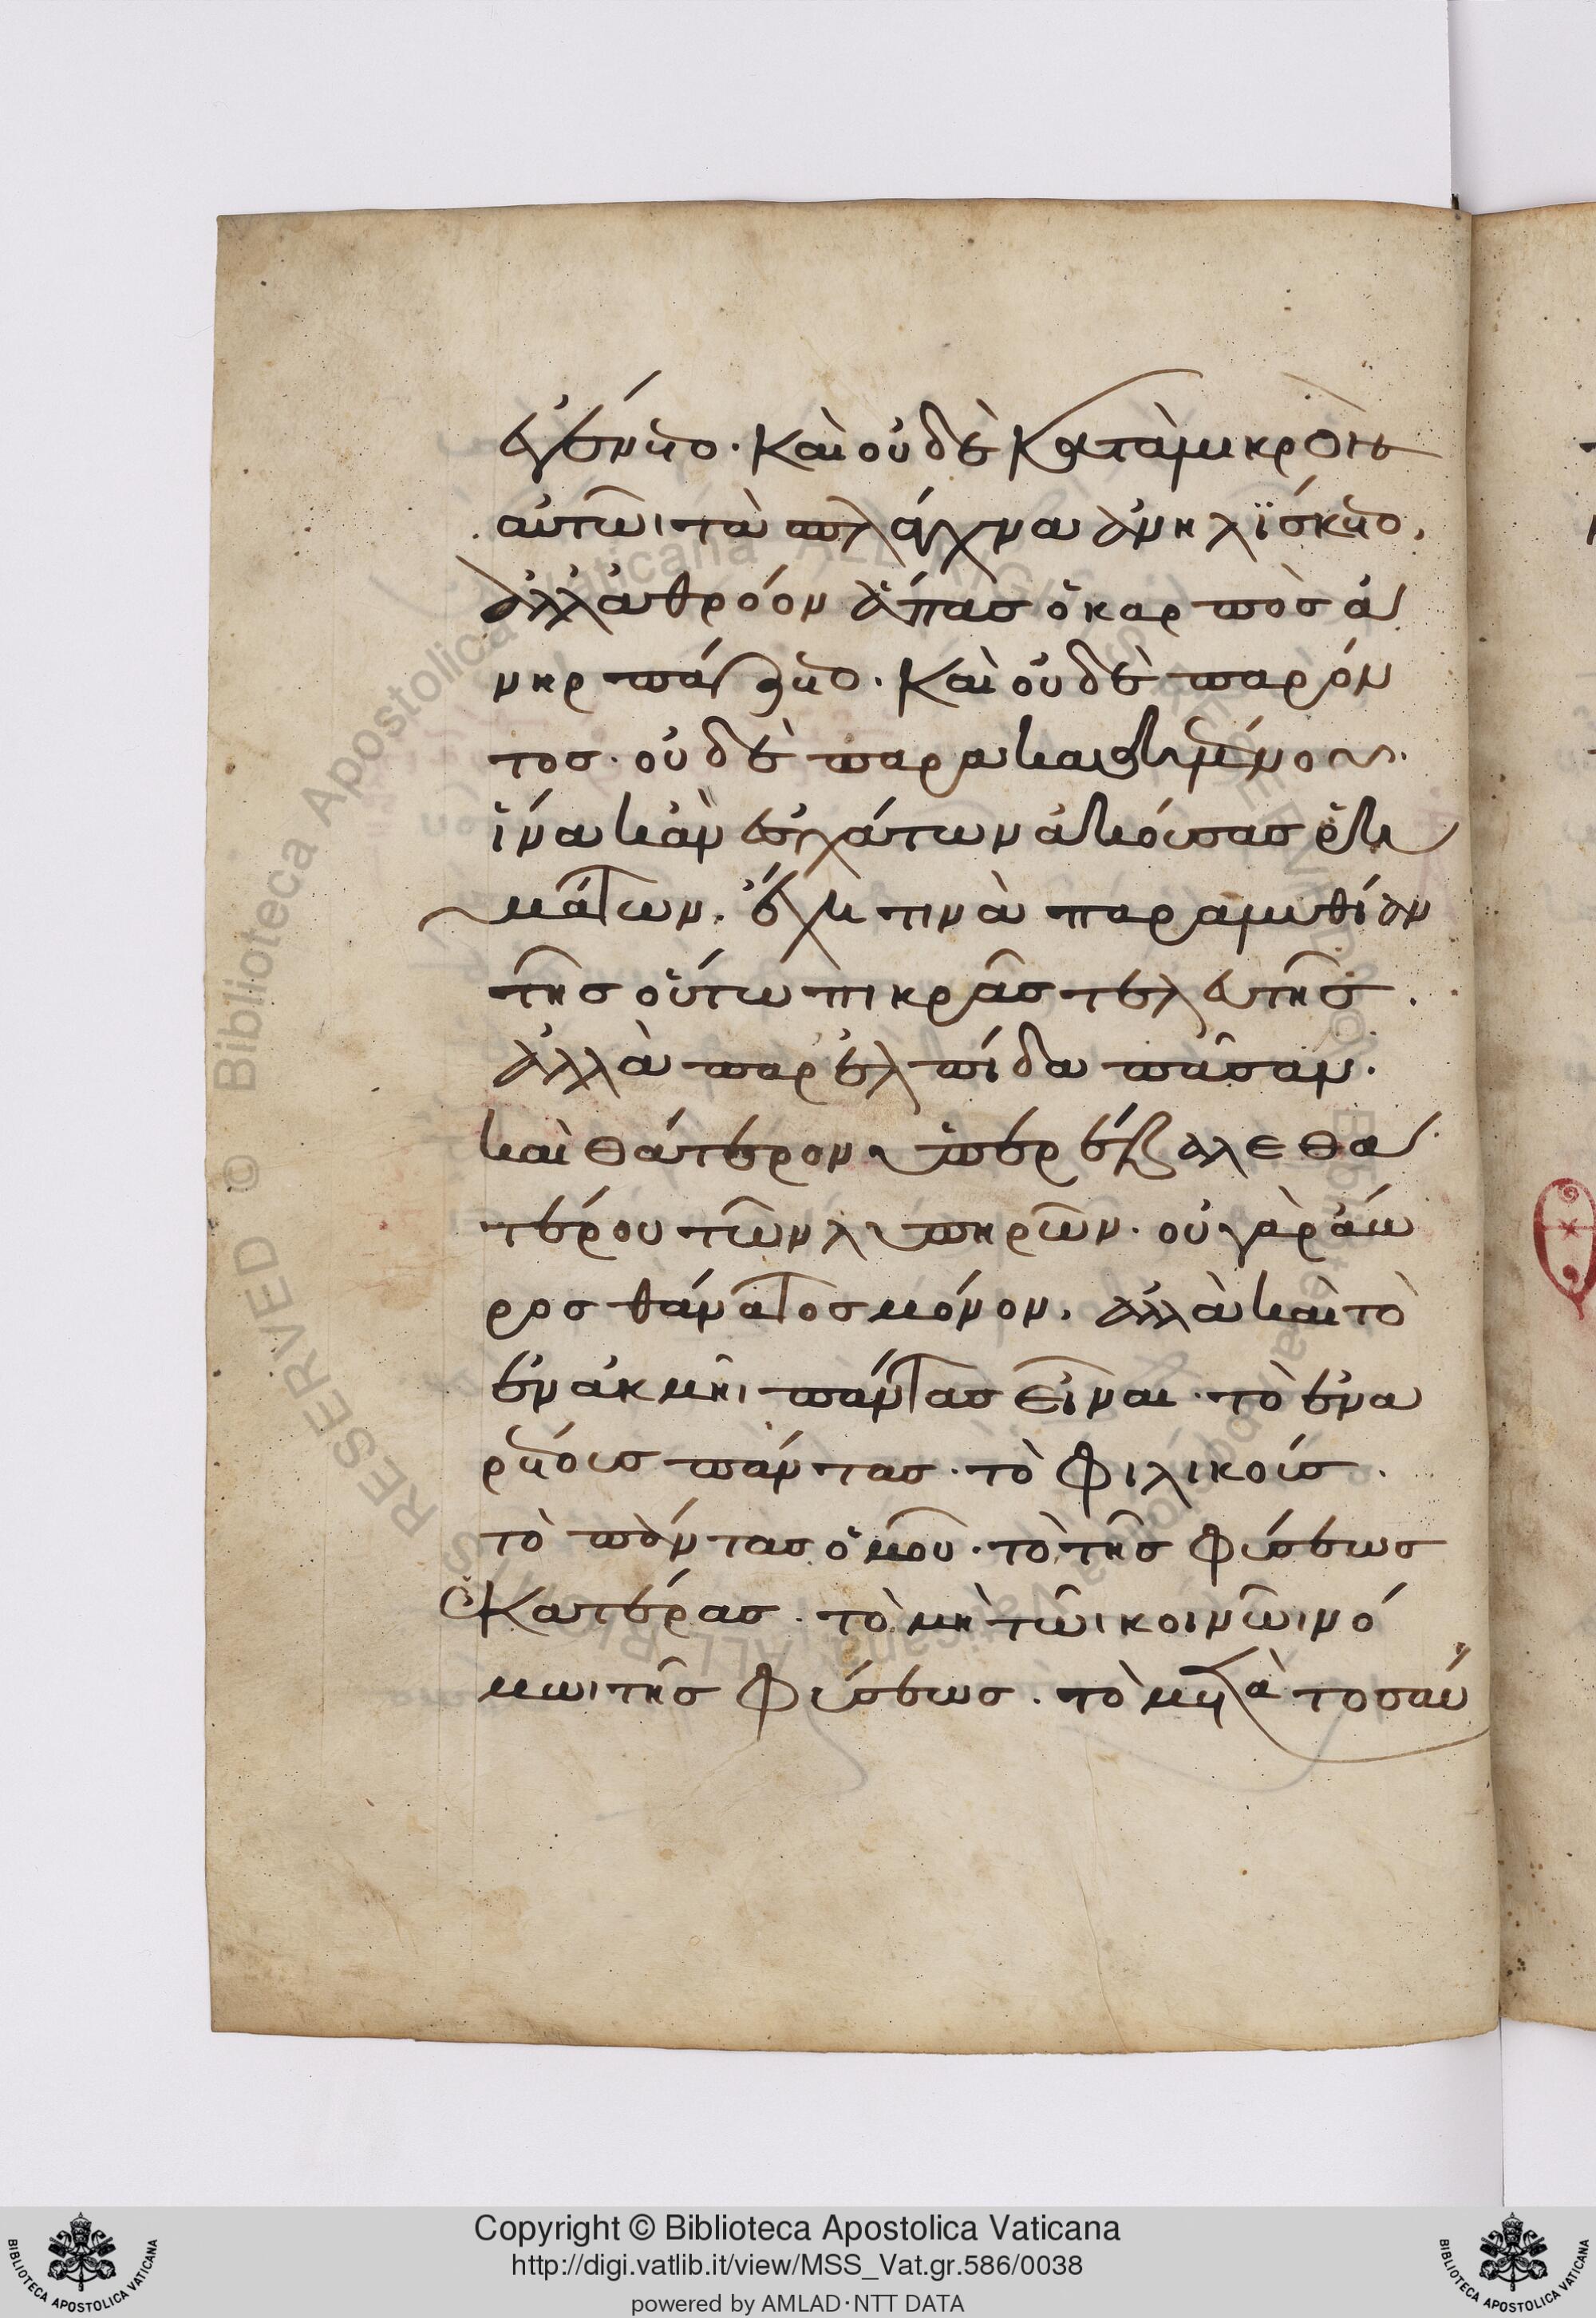 ἐγένετο· καὶ οὐδὲ κατὰ μικρὸν
αὐτῶι τὰ σπλάγχνα ἀνηλΐσκετο,
ἀλλ' ἀθρόον ἅπας ὁ καρπὸς ἀ
νηρπάζετο· καὶ οὐδὲ παρόν
τος· οὐδὲ παρακαθημένου·
ἵνα κἂν ἐσχάτων ἀκούσας ῥη
μάτων· ἔχη τινὰ παραμυθίαν
τῆς οὕτω πικρᾶς τελευτῆς·
ἀλλὰ παρ' ἐλπίδα πᾶσαν·
καὶ θάτερον ὑπερέβαλε θα
τέρου τῶν λυπηρῶν· οὐ γὰρ ἄω
ρος θάνατος μόνον· ἀλλὰ καὶ τὸ
ἐν ἀκμῆι πάντας εἶναι· τὸ ἐνα
ρέτους πάντας· τὸ φιλικούς·
τὸ πάντας ὁμοῦ· τὸ τῆς φύσεως
ἑκατέρας· τὸ μὴ τῶι κοινῶι νό
μωι τῆς φύσεως· τὸ μετὰ τοσαύ
Copyright © Biblioteca Apostolica Vaticana
http://digi.vatlib.it/view/MSS_Vat.gr.586/0038
powered by AMLAD·NTT DATA
BIBLIOTECA APOSTOLICA VATICANA
BIBLIOTECA APOSTOLICA VATICANA